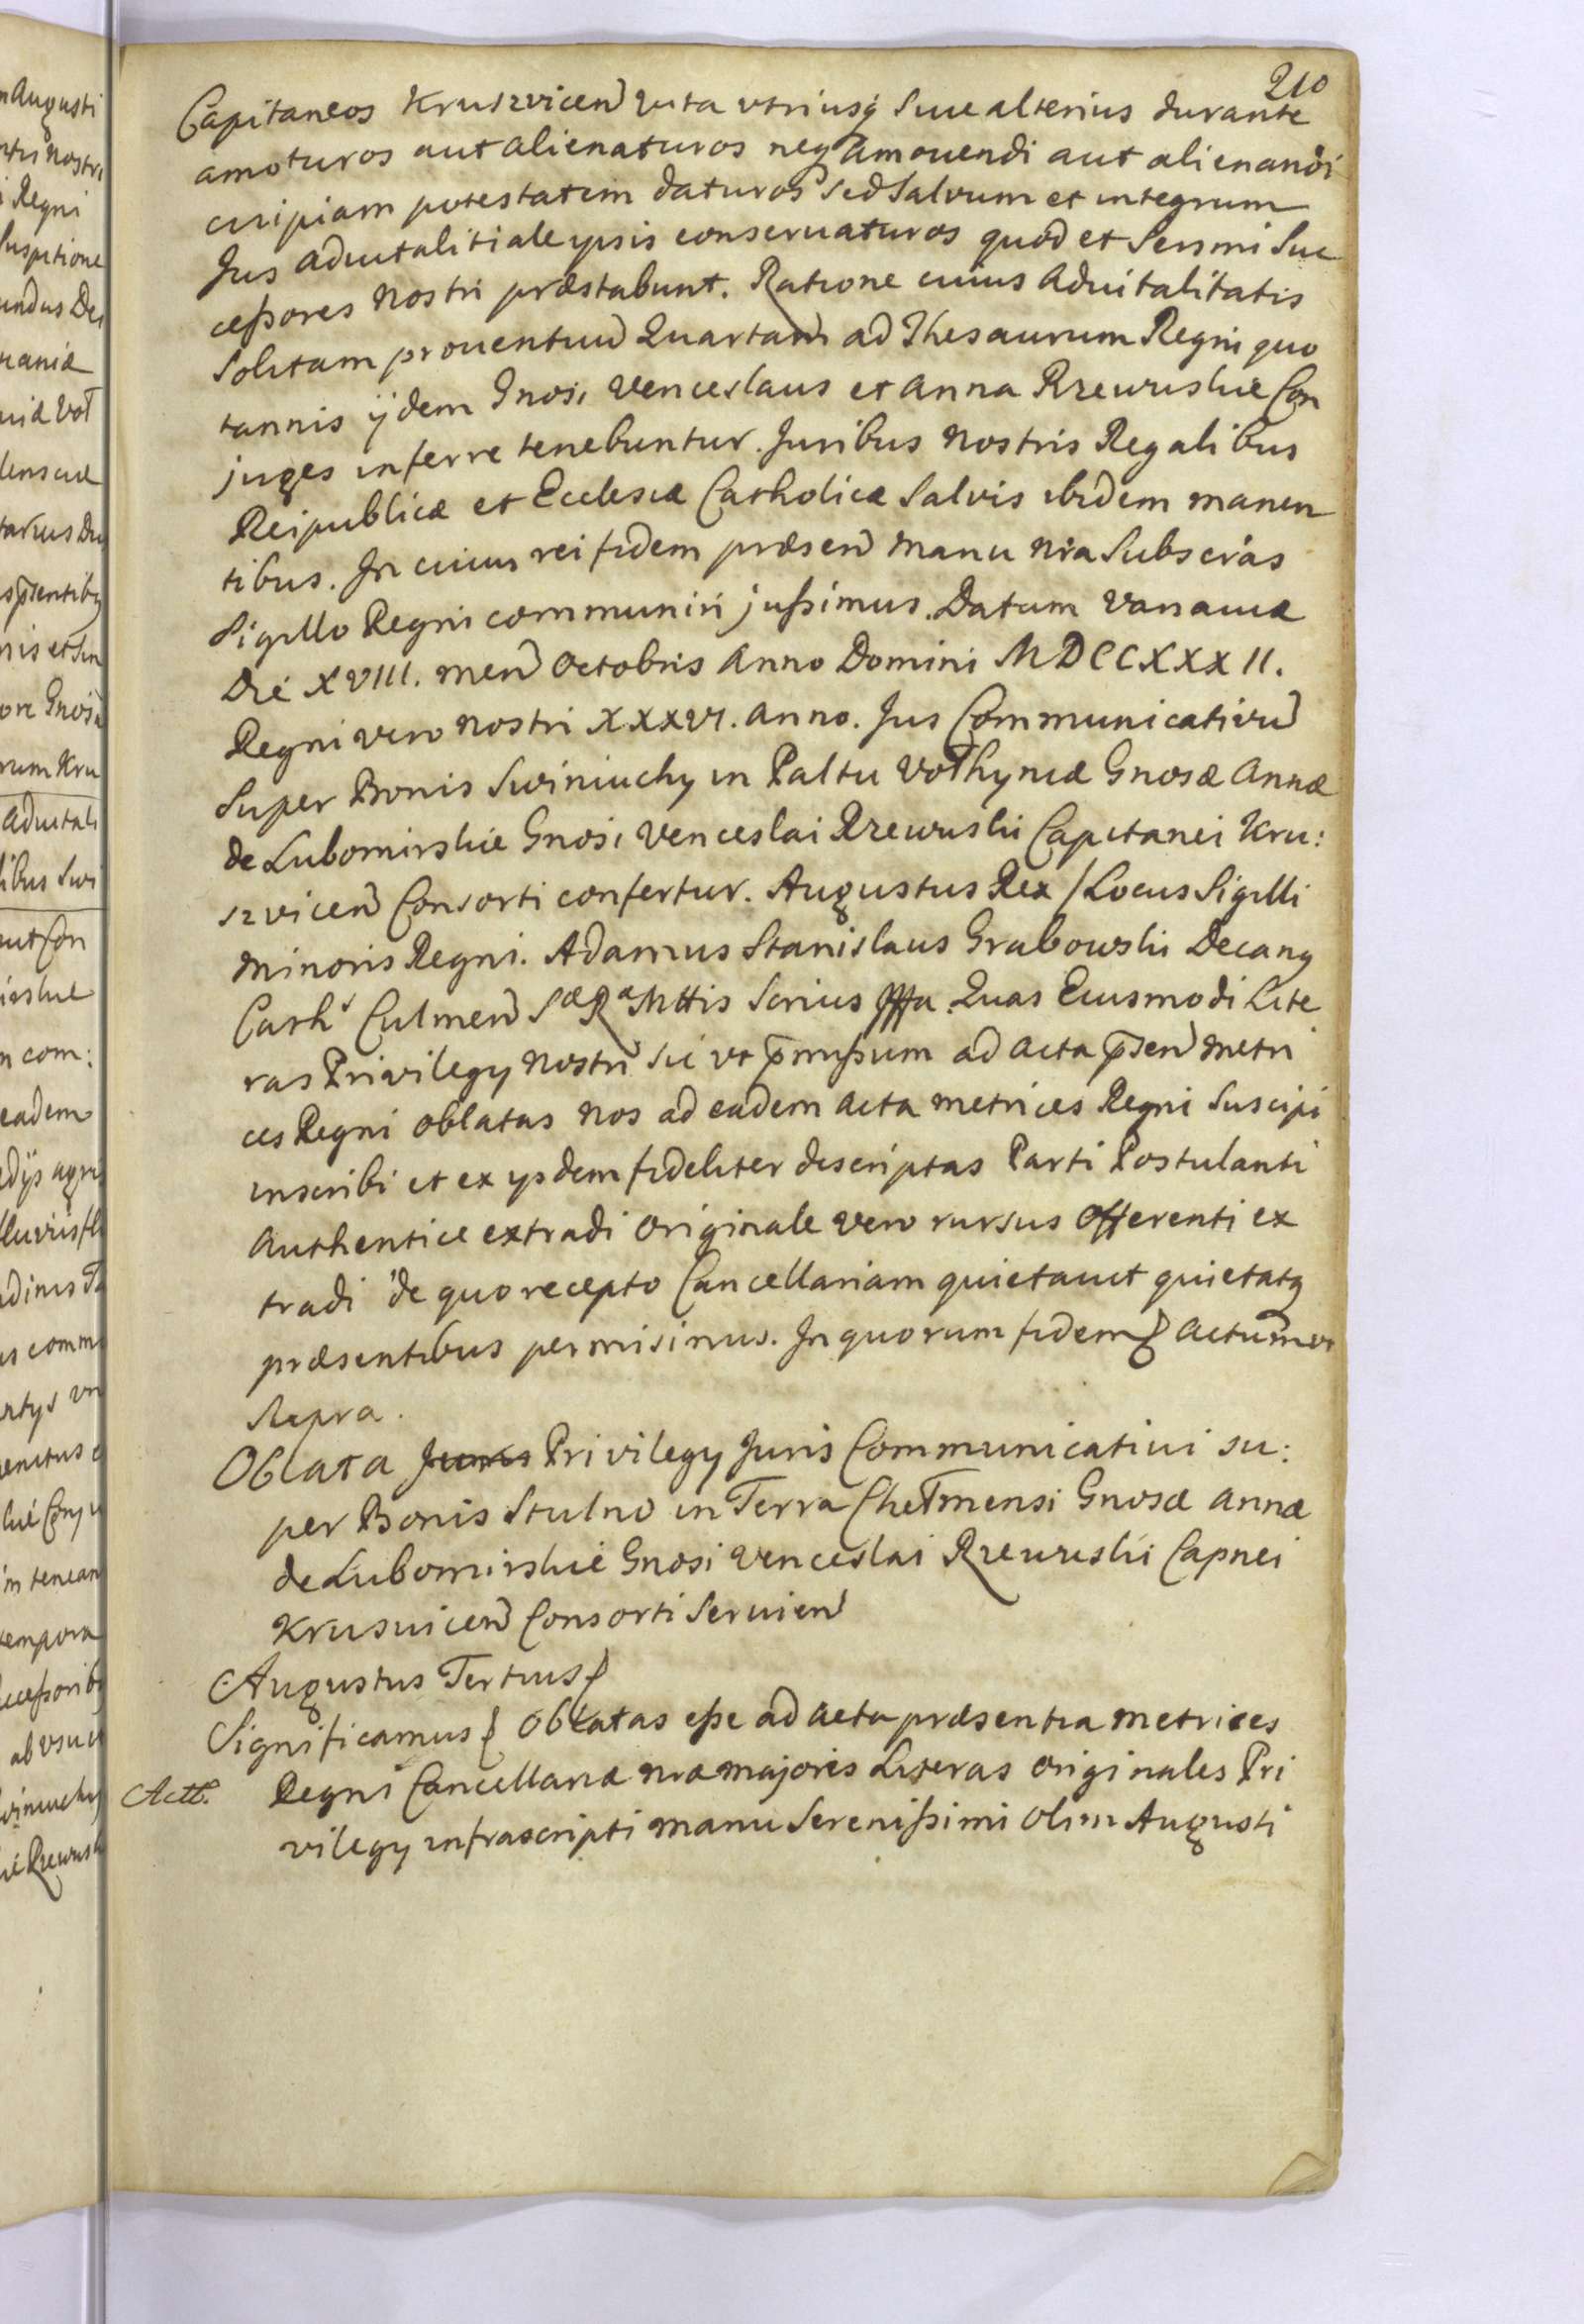 210
Capitaneos Kruszvicen vita vtriusq Siue alterius durante
amoturos aut alienaturos neq amouendi aut alienandi
cuipiam potestatem daturos sed Salvum et integrum
Jus aduitalitiale ypsis conseruaturos quod et Sersmi Suc
ceßores Nostri præstabunt. Ratione cuius aduitalitatis
Solitam prouentuu Quartam ad Thesaurum Regni quo
tannis ijdem Gnosi Venceslaus et Anna Rzewuskie Con
juges inferre tenebuntur. Juribus Nostris Regalibus
Reipublicæ et Ecclesiæ Catholicæ Salvis ibidem manen
tibus. In cuius rei fidem præsen manu nra Subscras
Sigillo Regni communiri jußimus. Datum Varsaviæ
Die XVIII. men Octobris Anno Domini MDCCXXXII.
Regni vero Nostri XXXVI. Anno. Jus Communicativu
Super Bonis Swiniuchy in Paltu Vołhyniæ Gnosæ Annæ
de Lubomirskie Gnosi Venceslai Rzewuski Capitanei Kru:
szvicen Consorti confertur. Augustus Rex / Locus Sigilli
Minoris Regni. Adamus Stanislaus Grabowski Decang
Cath Culmen Sæ Ræ Mttis Scrius mpp. Quas Eiusmodi Lite
ras Privilegy Nostri sic vt pmißum ad Acta psen Metri
ces Regni oblatas Nos ad eadem Acta Metrices Regni Suscipi
inscribi et ex ysdem fideliter descriptas Parti Postulanti
Authentice extradi originale vero rursus Offerenti ex
tradi de quo recepto Cancellariam quietauit quietatq
præsentibus permisimus. In quorum fidem Actum vt
Supra.
Oblata Privilegy Juris Communicatiui su:
per Bonis Stulno in Terra Chełmensi Gnosæ Annæ
de Lubomirskie Gnosi Venceslai Rzewuski Capnei
Krusvicen Consorti Seruien
Augustus Tertius
Significamus Oblatas eße ad Acta præsentia Metrices
Actt. Regni Cancellariæ nræ majoris Literas originales Pri
vilegy infrascripti manu Serenißimi olim Augusti